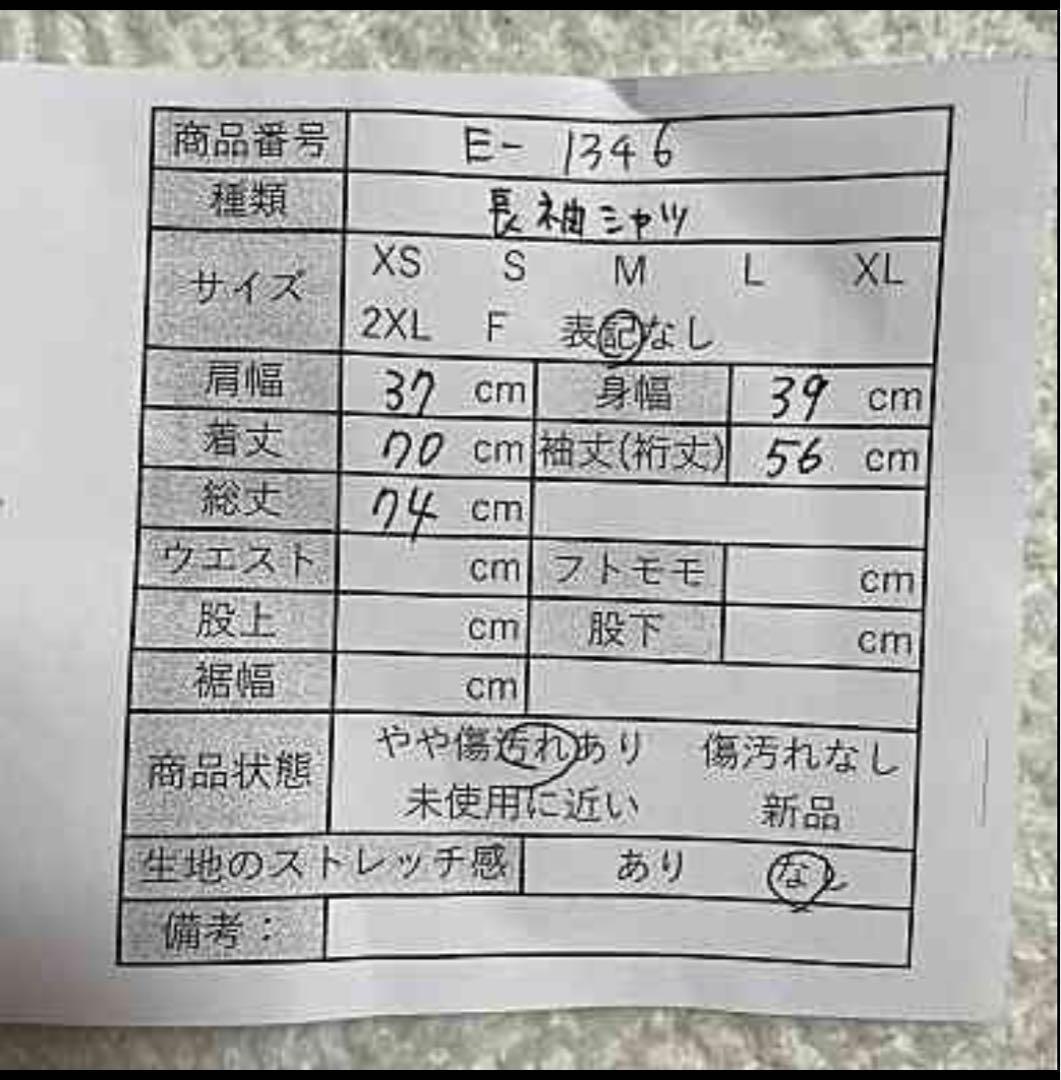 商品番号 E- 1346
種類 長袖シャツ
サイズ XS S M L XL
2XL F 表記なし
肩幅 37 cm 身幅 39 cm
着丈 70 cm 袖丈(裄丈) 56 cm
総丈 74 cm
ウエスト cm フトモモ cm
股上 cm 股下 cm
裾幅 cm
商品状態 やや傷汚れあり 傷汚れなし
未使用に近い 新品
生地のストレッチ感 あり なし
備考：